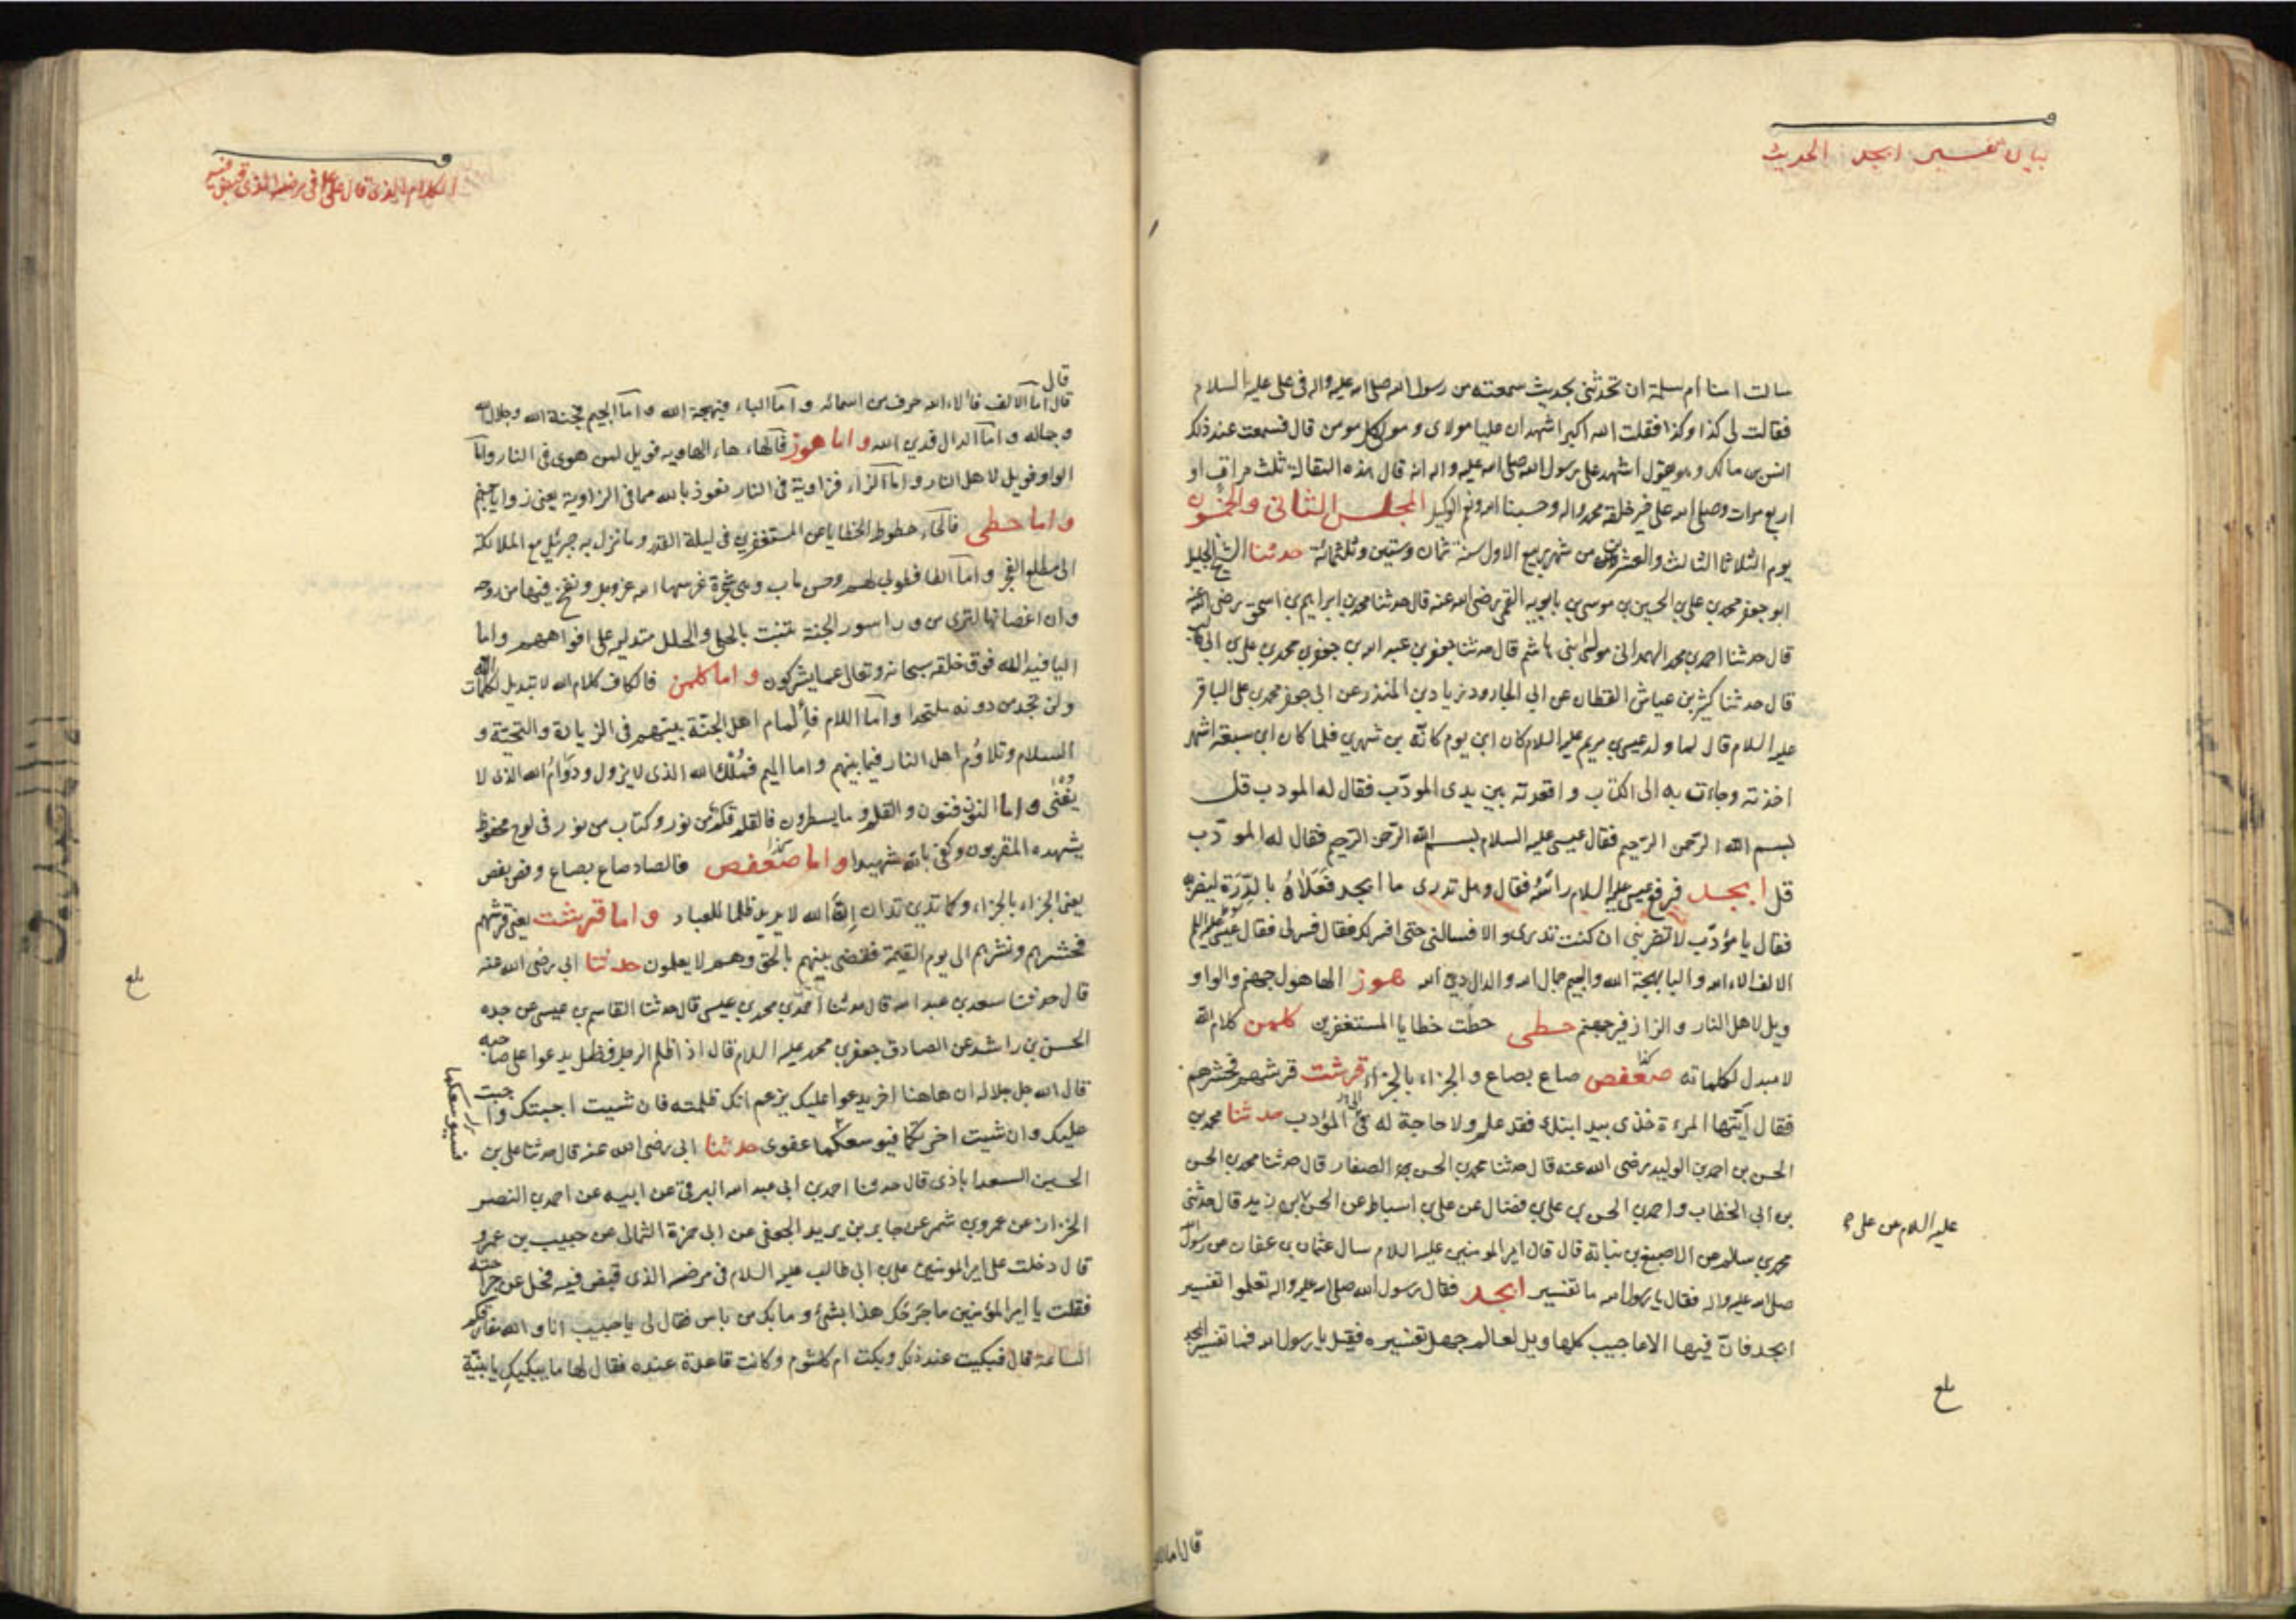 بيان تفسير ابجد الحديث
سالت امنا ام سلمة ان تحدثنى بحديث سمعته من رسول الله صلى الله عليه واله فى على عليه السلام
فقالت لى كذا وكذا فقلت الله اكبر اشهد ان عليا مولاى و مولى كل مومن قال فسمعت عند ذلك
انس بن مالك و هو يقول اشهد على رسول الله صلى الله عليه واله انه قال هذه المقالة ثلث مرات او
اربع مرات وصلى الله على خير خلقه محمد واله وحسبنا الله ونعم الوكيل المجلس الثانى والخمسون
يوم الثلاثا الثالث والعشرون من شهر ربيع الاول سنة ثمان وستين وثلثمائة حدثنا الشيخ الجليل
ابو جعفر محمد بن على بن الحسين بن موسى بن بابويه القمى رضى الله عنه قال حدثنا محمد بن ابراهيم بن اسحق رضى الله عنه
قال حدثنا احمد بن محمد الهمدانى مولى بنى هاشم قال حدثنا جعفر بن عبد الله بن جعفر بن محمد بن على بن ابى طالب
قال حدثنا كثير بن عياش القطان عن ابى الجارود زياد بن المنذر عن ابى جعفر محمد بن على الباقر
عليه السلام قال لما ولد عيسى بن مريم عليه السلام كان ابن يوم كانّه بن شهرين فلما كان ابن سبعة اشهر
اخذته وجاءت به الى الكتّاب و اقعدته بين يدى المودّب فقال له المودب قل
بسم الله الرّحمن الرّحيم فقال عيسى عليه السلام بسم الله الرّحمن الرّحيم فقال له المودّب
قل ابجد فرفع عيسى عليه السلام راسَهُ فقال وهل تدرى ما ابجد فَعَلاهُ بالدِّرّة ليضربه
فقال يا مؤدّب لا تضربنى ان كنت تدرى والا فسالنى حتى افسر لك فقال فسر لى فقال عيسى عليه السلام
الالف الاء الله والبا بهجة الله والجيم جمال الله والدال دين الله هوز الها هول جهنم والواو
ويل لاهل النار والزا زفير جهنم حطى حطّت خطايا المستغفرين كلمن كلام الله
لا مبدل لكلماته صعفص كذا صاع بصاع و الجزاء بالجزاء قرشت قرشهم فحشرهم
فقال ايّتها المرءة خذى بيد ابنك فقد علم ولا حاجة له فى المؤدب حدثنا محمد بن
الحسن بن احمد بن الوليد رضى الله عنه قال حدثنا محمد بن الحسن الصفار قال حدثنا محمد بن الحسين
بن ابى الخطاب و احمد بن الحسن بن على بن فضال عن على بن اسباط عن الحسن بن زيد قال حدثنى
محمد بن سالم عن الاصبغ بن نباتة قال قال امير المومنين عليه السلام سال عثمان بن عفان عن رسول الله
صلى الله عليه واله فقال يا رسول الله ما تفسير ابجد فقال رسول الله صلى الله عليه واله تعلموا تفسير
ابجد فان فيها الاعاجيب كلها ويل لعالم جهل تفسيره فقيل يا رسول الله فما تفسير ابجد
عليه السلام من على
بلغ
الكلام الذى قال على فى مرضه الذى قبض فيه
قال
قال اما الالف فالاء الله حرف من اسمائه و اما الباء فبهجة الله و اما الجيم فجنة الله وجلال الله
و جماله و اما الدال فدين الله و اما هوز فالهاء هاء الهاويه فويل لمن هوى فى النار واما
الواو فويل لاهل النار و اما الزاء فزاوية فى النار نعوذ بالله مما فى الزاوية يعنى زوايا جهنم
و اما حطى فالحاء حطوط الخطايا عن المستغفرين فى ليلة القدر و ما نزل به جبرئيل مع الملائكة
الى مطلع الفجر و اما الطا فطوبى لهم وحسن ماب وهى شجرة غرسها الله عزوجل ونفخ فيها من روحه
وان اغصانها لترى من وراء سور الجنة تنبت بالحلى والحلل متدليه على افواههم واما
اليا فيد الله فوق خلقه سبحانه وتعالى عما يشركون و اما كلمن فالكاف كلام الله لا تبديل لكلمات الله
ولن تجد من دونه ملتحدا و اما اللام فالمام اهل الجنّة بينهم فى الزيارة والتحيّة و
السلام وتلاوُم اهل النار فيما بينهم و اما الميم فمُلْك الله الذى لا يزول ودوام الله الذى لا
يَفْنى و اما النون فنون والقلم وما يسطرون فالقلم قلم من نور وكتاب من نور فى لوح محفوظ
يشهده المقربون وكفى بالله شهيدا و اما صعفص كذا فالصاد صاع بصاع وفص بفص
يعنى الجزاء بالجزاء وكما تدين تدان ان الله لا يريد ظلما للعباد و اما قرشت يعنى قرشهم
فحشرهم ونشرهم الى يوم القيمة فقضى بينهم بالحق وهم لا يعلمون حدثنا ابى رضى الله عنه
قال حدثنا سعد بن عبد الله قال حدثنا احمد بن محمد بن عيسى قال حدثنا القاسم بن عيسى عن جده
الحسن بن راشد عن الصادق جعفر بن محمد عليه السلام قال اذا ظلم الرجل فظل يدعوا على صاحبه
قال الله جل جلاله ان هاهنا اخر يدعوا عليك يزعم انك ظلمته فان شئيت اجبتك واجبت
عليك وان شئيت اخرتكما فيوسعكما عفوى حدثنا ابى رضى الله عنه قال حدثنا على بن
الحسين السعدابادى قال حدثنا احمد بن ابى عبد الله البرقى عن ابيه عن احمد بن النضر
الخزاز عن عمرو بن شمر عن جابر بن يزيد الجعفى عن ابى حمزة الثمالى عن حبيب بن عمرو
قال دخلت على امير المومنين على بن ابى طالب عليه السلام فى مرضه الذى قبض فيه فحل عن جراحته
فقلت يا امير المؤمنين ما جرحك هذا بشئ و ما بك من باس فقال لى يا حبيب انا والله مفارقكم
الساعة قال فبكيت عند ذلك وبكت ام كلثوم وكانت قاعدة عنده فقال لها ما يبكيكِ يا بنيّة
بلغ